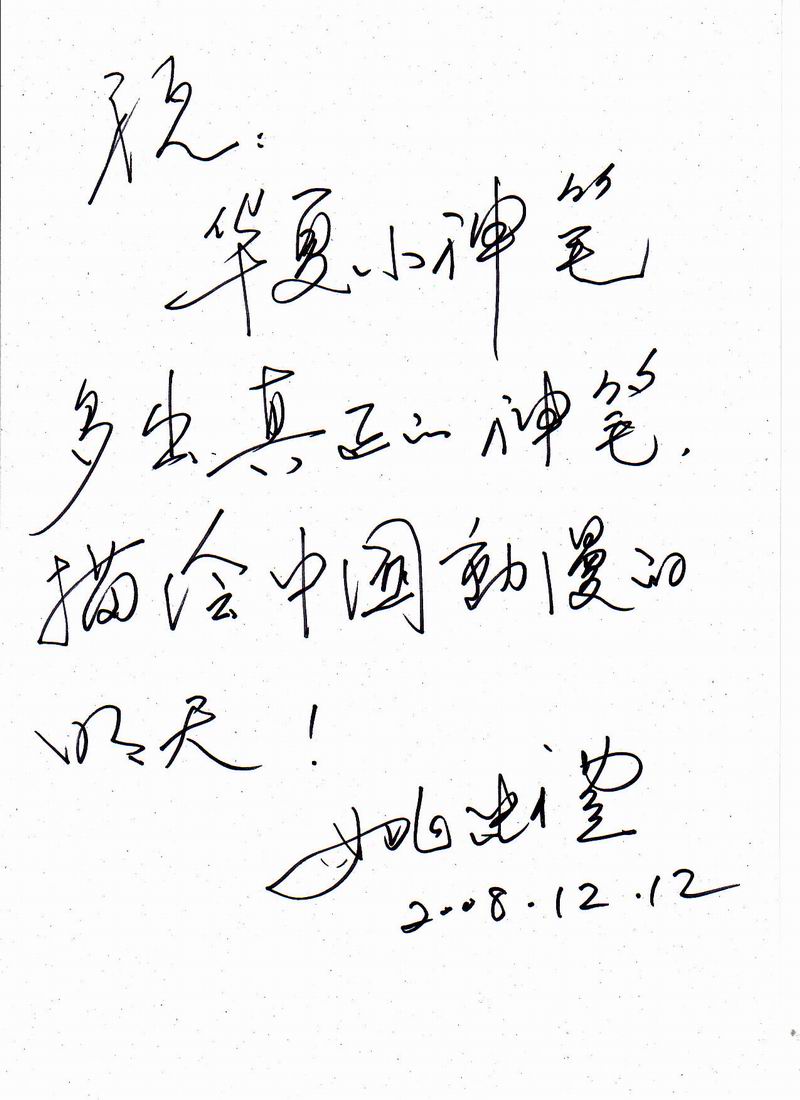 祝：
华夏小神笔
多出真正的神笔.
描绘中國動漫的
明天！
姚忠禮
2008.12.12